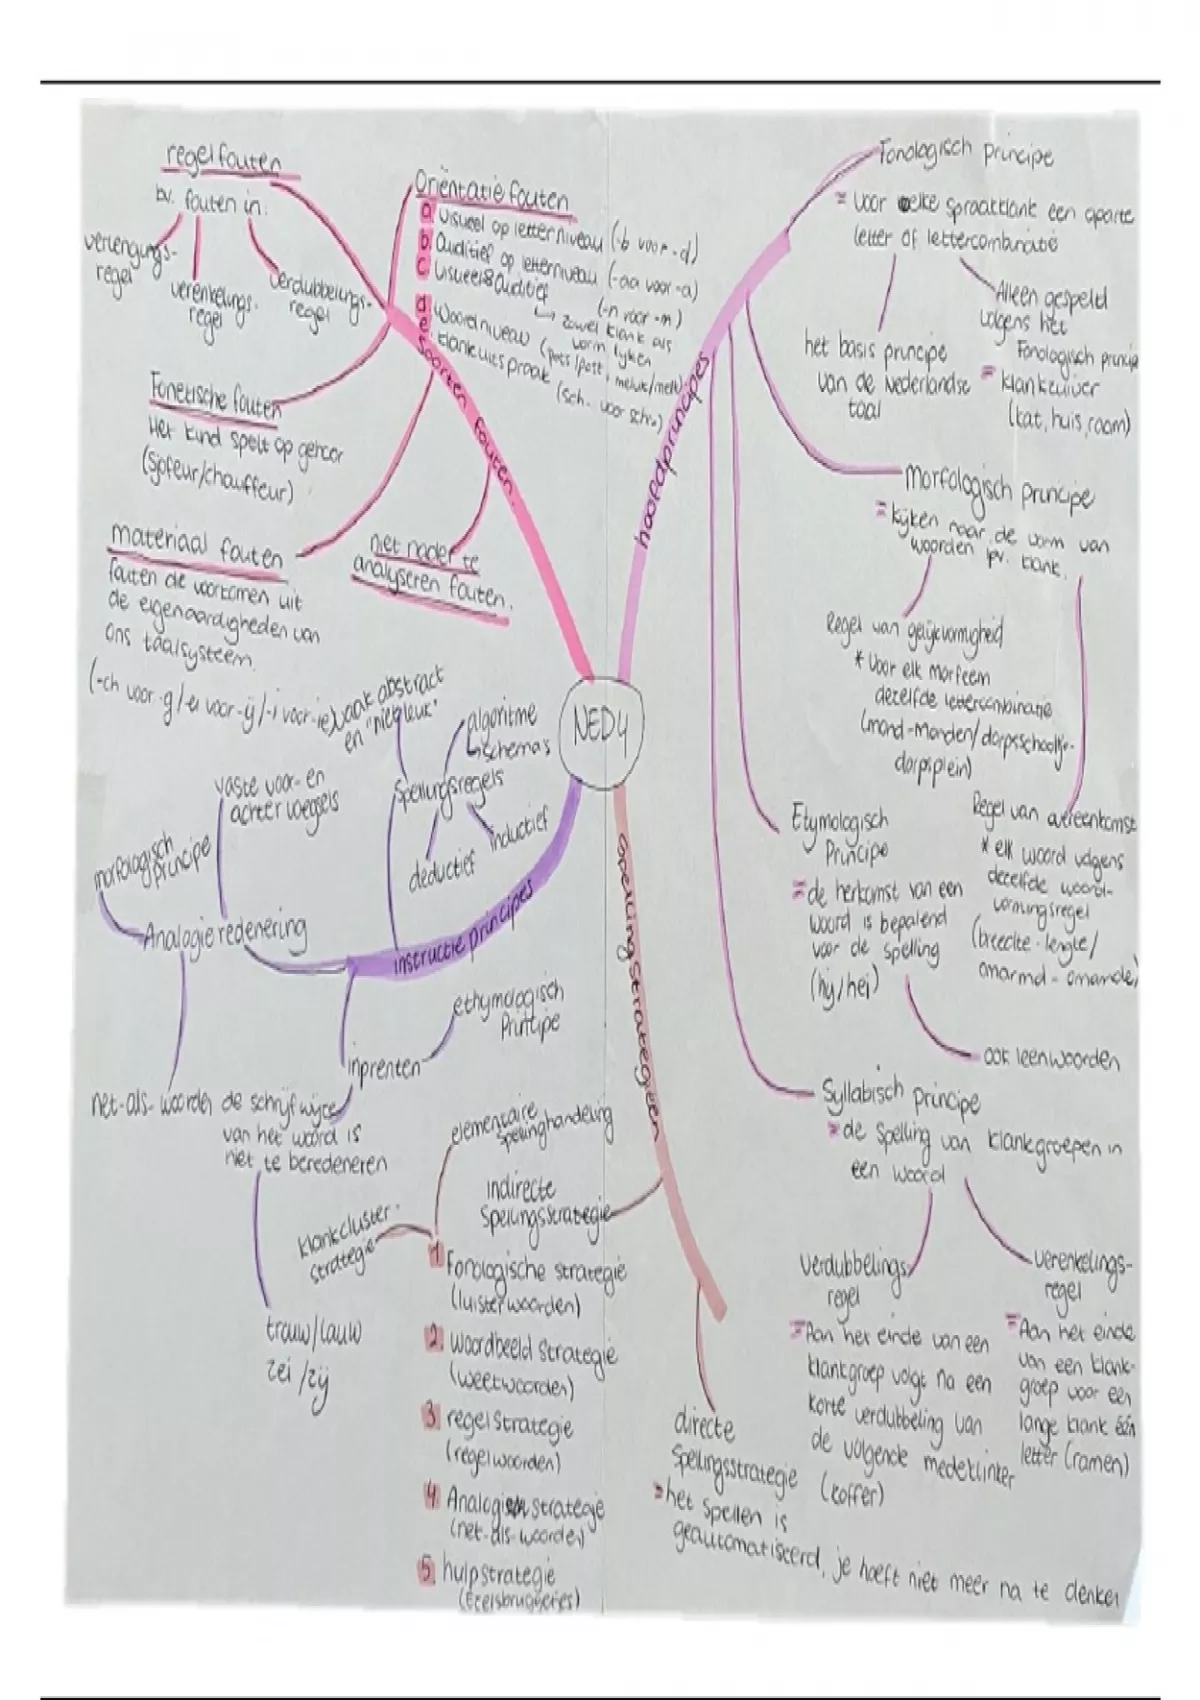 NED4
Soorten fouten.
regel fouten
bv. fouten in.
verlengings-
regel
verenkelings-
regel
verdubbelings-
regel
Oriëntatie fouten
a. Visueel op letterniveau (-b voor -d)
b. Auditief op letterniveau (-aa voor -a)
c. Visueel & Auditief (-n voor -m)
↳ zowel klank als
vorm lijken
d. Woordniveau (poes/post, meluk/melk)
e. klankuitspraak (sch- voor schr)
Fonetische fouten
Het kind spelt op gehoor
(Sjofeur/chauffeur)
Materiaal fouten
fouten die voorkomen uit
de eigenaardigheden van
ons taalsysteem.
(-ch voor -g/-ei voor -ij/-i voor -ie)
niet nader te
analyseren fouten.
hoofdprincipes
Fonologisch principe
= Voor elke spraakklank een aparte
letter of lettercombinatie
het basis principe
van de Nederlandse
taal
Alleen gespeld
volgens het
Fonologisch principe
= klankzuiver
(kat, huis, raam)
Morfologisch principe
= kijken naar de vorm van
woorden ipv. klank.
Regel van gelijkvormigheid
* Voor elk morfeem
dezelfde lettercombinatie
(mond-monden/dorpsschooltje-
dorpsplein)
Regel van overeenkomst
* elk woord volgens
dezelfde woord-
vormingsregel
(breedte-lengte/
omarmd-omarmde)
Etymologisch
Principe
= de herkomst van een
woord is bepalend
voor de spelling
(hij/hei)
ook leenwoorden
Syllabisch principe
= de spelling van klankgroepen in
een woord
Verdubbelings-
regel
= Aan het einde van een
klankgroep volgt na een
korte verdubbeling van
de volgende medeklinker
(koffer)
Verenkelings-
regel
= Aan het einde
van een klank-
groep voor een
lange klank één
letter (ramen)
instructie principes
Spellingsregels
vaak abstract
en "niet leuk"
algoritme
↳ schema's
deductief
inductief
Analogieredenering
vaste voor- en
achtervoegsels
morfologisch
principe
net-als-woorden
inprenten
ethymologisch
Principe
de schrijfwijze
van het woord is
niet te beredeneren
trouw/lauw
zei/zij
Spellingstrategieën
indirecte
Spellingsstrategie
elementaire
spellinghandeling
klankcluster-
strategie
1 Fonologische strategie
(luisterwoorden)
2. Woordbeeld strategie
(weetwoorden)
3 regelstrategie
(regelwoorden)
4 Analogieën strategie
(net-als-woorden)
5. hulpstrategie
(Ezelsbruggetjes)
directe
Spellingsstrategie
= het spellen is
geautomatiseerd, je hoeft niet meer na te denken